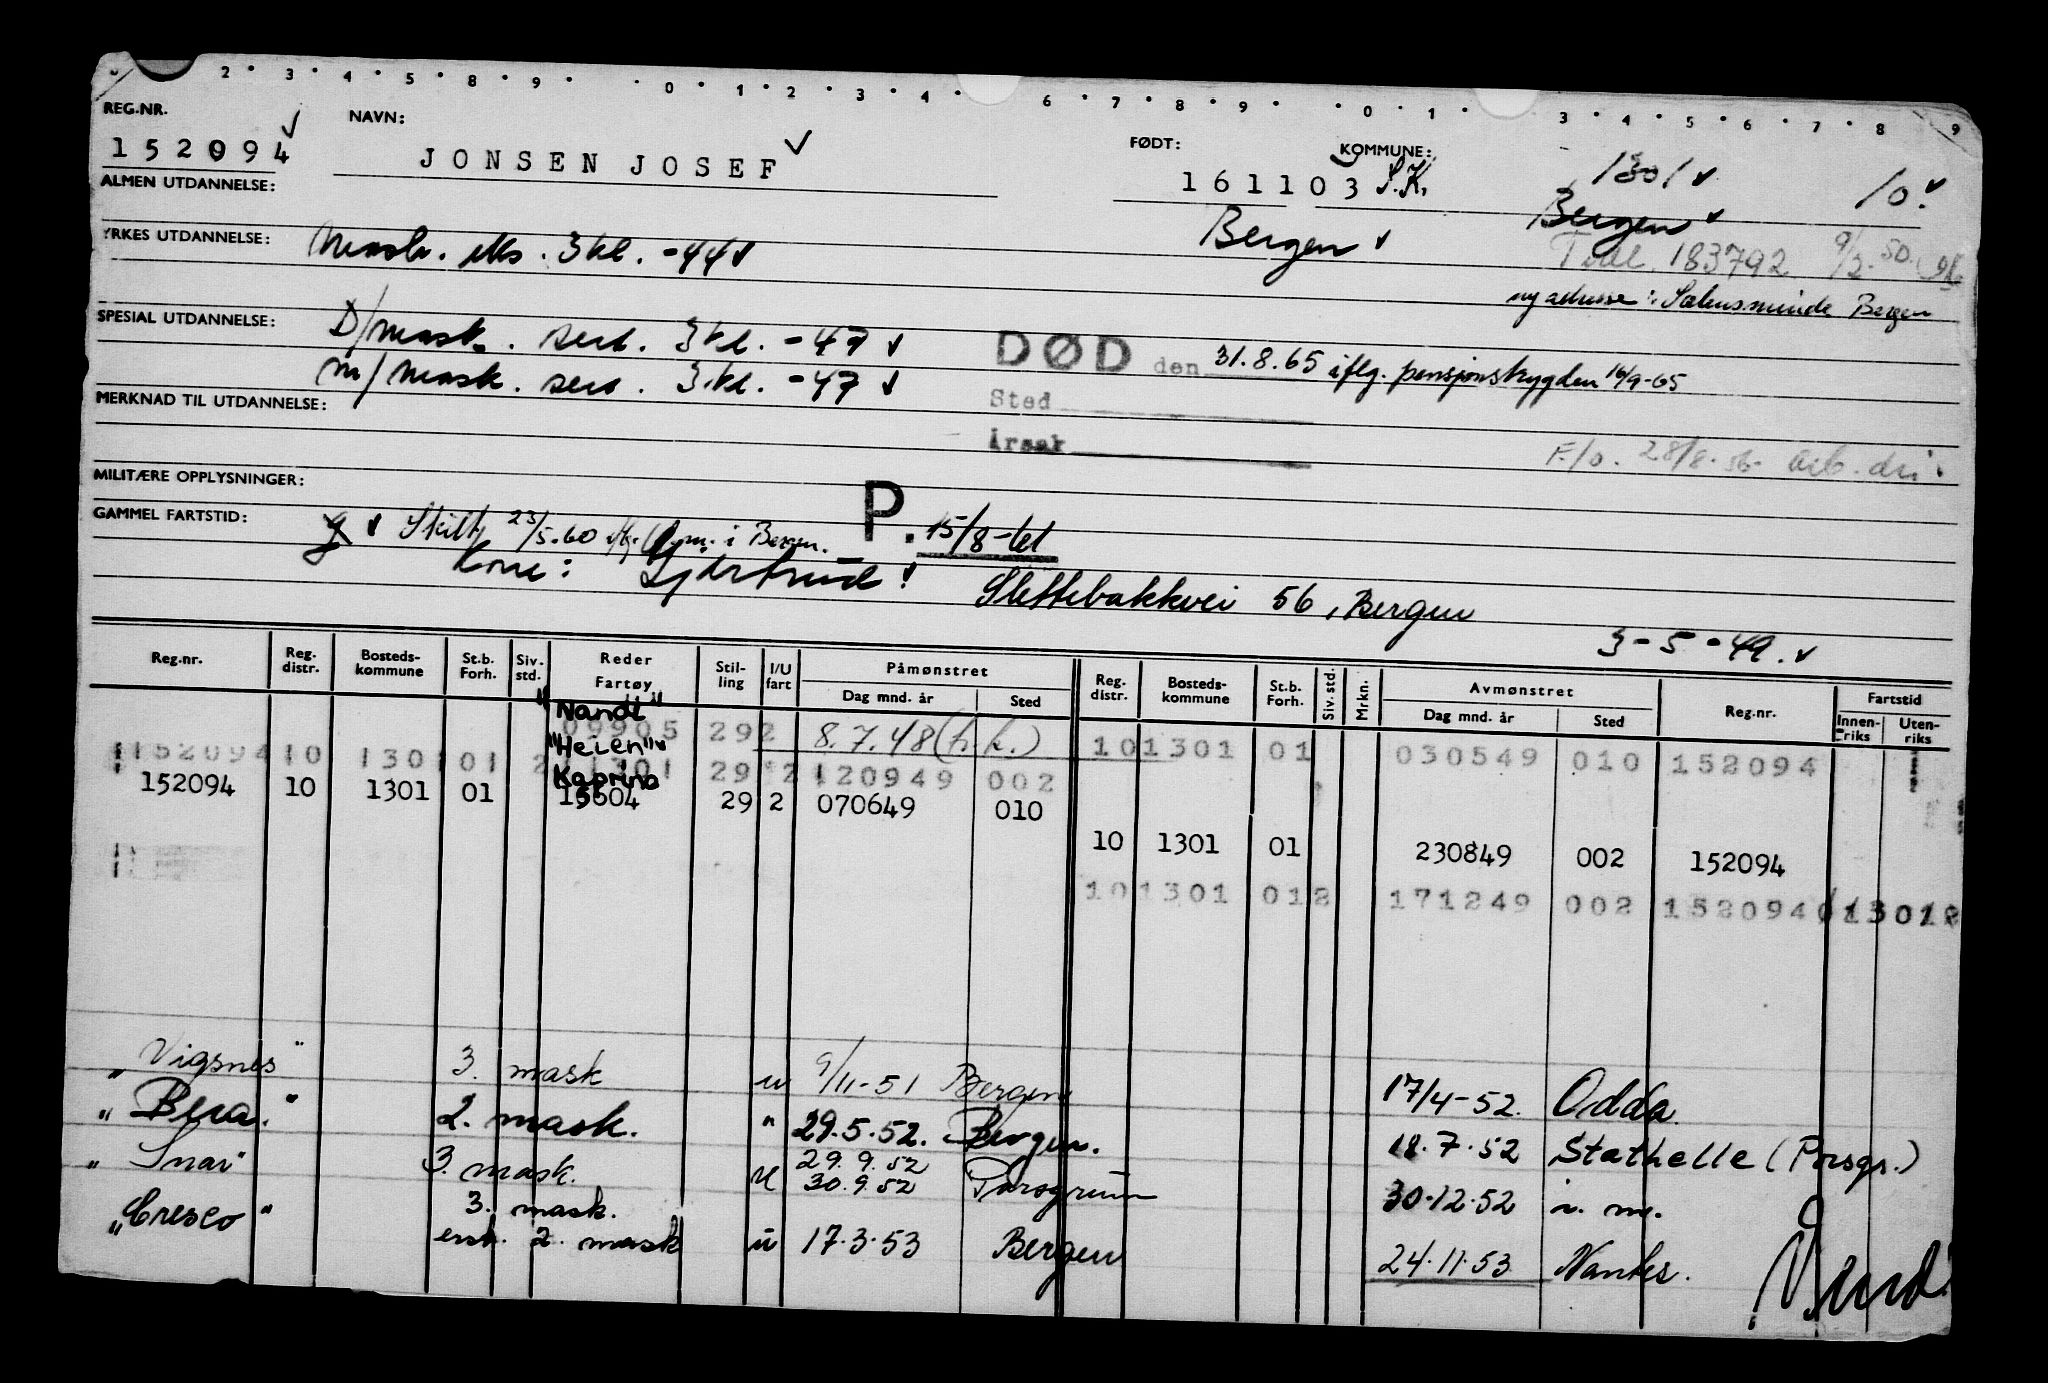 2 3 4 5 8 9 0 1 2 3 4 6 7 8 9 0 1 3 4 5 6 7 8 9
REG.NR. NAVN: FØDT: KOMMUNE:
152094 JONSEN JOSEF 161103 S.K. 1301 10.
ALMEN UTDANNELSE: Bergen Bergen
YRKES UTDANNELSE: Mask. eks. 3kl. -44 Tidl. 183792 9/2.50.
ny adresse: Bergen
SPESIAL UTDANNELSE: D/mask. sert. 3kl. -47
DØD den 31.8.65 iflg. pensjonstrygden 16/9-65
m/mask. sert. 3.kl. -47
Sted
MERKNAD TIL UTDANNELSE:
Årsak
F/o. 28/8.56.
MILITÆRE OPPLYSNINGER:
P. 15/8-61
GAMMEL FARTSTID: g Skilt 23/5.60 i Bergen.
Kone: Gjertrud
Slettebakkvei 56, Bergen
3-5-49.
Reg.nr. Reg. distr. Bosteds-kommune St.b. Forh. Siv. std. Reder Fartøy Stil-ling I/U fart Påmønstret Dag mnd. år Sted Reg. distr. Bosteds-kommune St.b. Forh. Siv. std. Mrkn. Avmønstret Dag mnd. år Sted Reg.nr. Fartstid Innen-riks Uten-riks
"Nandi"
09905 292 8.7.48 (h.k.) 10 1301 01 030549 010 152094
"Heien"
152094 10 1301 01 29 2 120949 002
Kaprino
152094 10 1301 01 15604 29 2 070649 010
10 1301 01 230849 002 152094
10 1301 012 171249 002 152094
"Vigsnes" 3. mask u 9/11-51 Bergen 17/4-52. Odda
"Bera." 2. mask. " 29.5.52. Bergen. 18.7.52 Stathelle (Porsgr.)
"Snar" 3. mask. u 29.9.52 30.9.52 Porsgrunn 30.12.52 i. m.
3. mask.
"Cresco" 2. mask u 17.3.53 Bergen 24.11.53 Nantes.
Vend